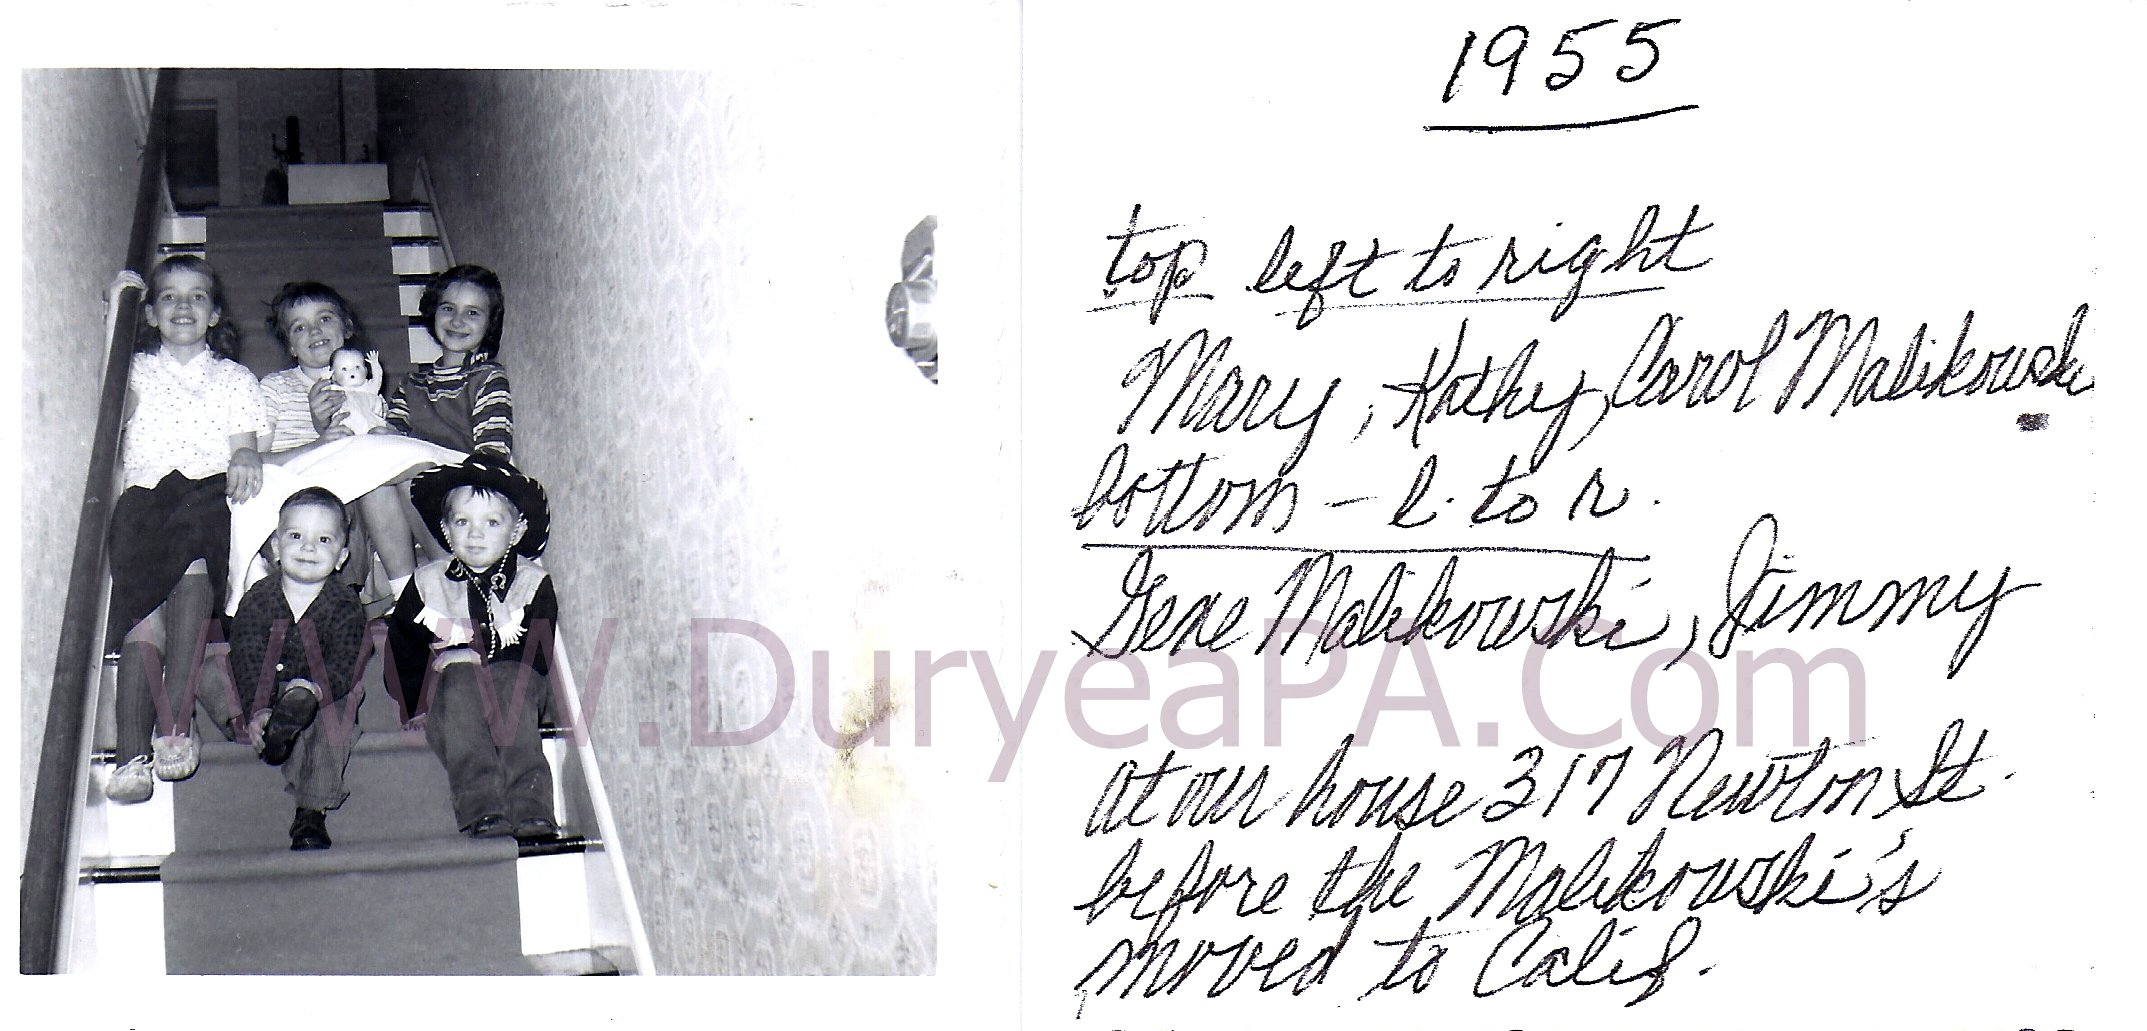 1955
top left to right
Mary, Kathy, Carol Malikowski
bottom - l. to r.
Gene Malikowski, Jimmy
WWW.DuryeaPA.Com
at our house 317 Newton St.
before the Malikowski's
moved to Calif.